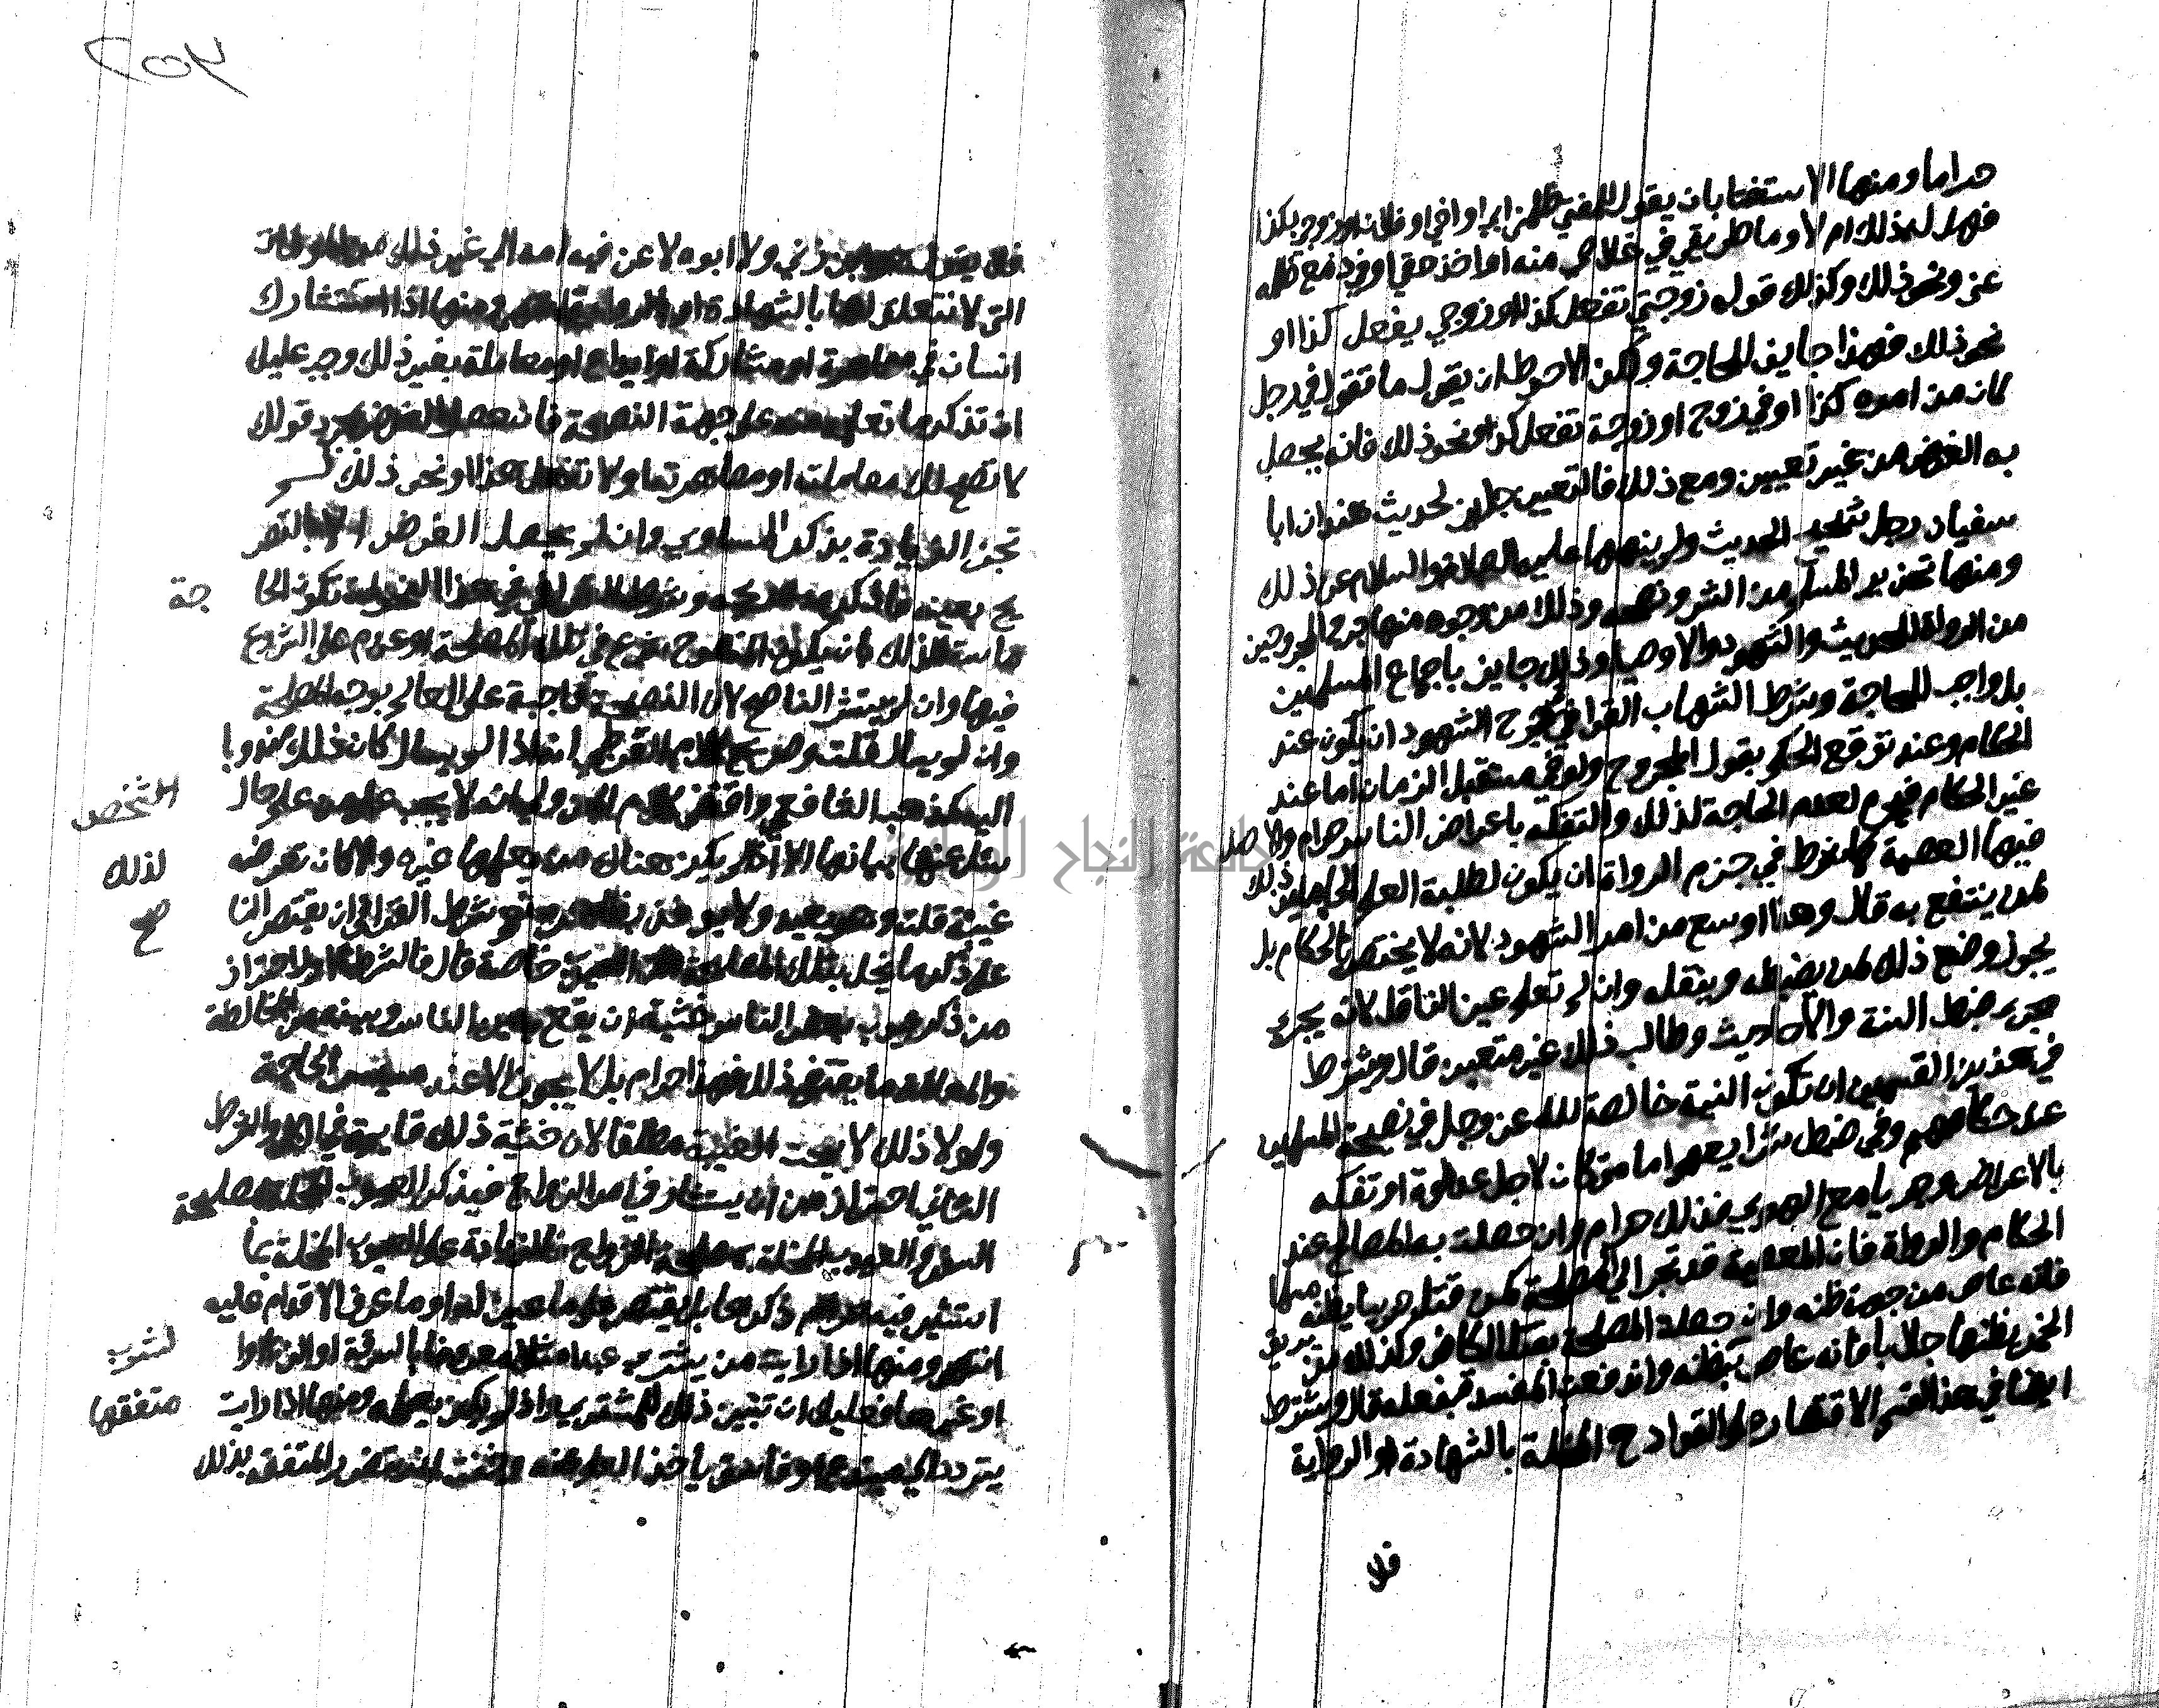 حراما ومنها الاستفتا بان يقول للمفتي ظلمني ابي او اخي او فلان او زوجي بكذا
فهل له ذلك ام لا وما طريقي في خلاصي منه او اخذ حقي او في دفع ظلمه
عني ونحو ذلك وكذلك قوله زوجتي تفعل كذا او زوجي يفعل كذا او
نحو ذلك فهذا جايز للحاجة ولكن الاحوط ان يقول ما تقول في رجل
كان من امره كذا او في زوج او زوجة تفعل كذا ونحو ذلك فانه يحصل
به الغرض من غير تعيين ومع ذلك فالتعيين جايز لحديث هند ان ابا
سفيان رجل شحيح الحديث ولم ينهها عليه الصلاة والسلام عن ذلك
ومنها تحذير المسلم من الشر ونصحه وذلك من وجوه منها جرح المجروحين
من الرواة للحديث والشهود والاوصيا وذلك جايز باجماع المسلمين
بل واجب للحاجة وشرط الشهاب القرافي في جرح الشهود ان يكون عند
الحكام وعند توقع الحكم بقول المجروح ولو في مستقبل الزمان اما عند
غير الحكام فيحرم لعدم الحاجة لذلك والتفكه باعراض الناس حرام والاصل
فيها العصمة كما شرط في جرح الرواة ان يكون لطلبة العلم الحاملين ذلك
لمن ينتفع به قال وهذا اوسع من امر الشهود لانه لا يختص بالحكام بل
يجوز وضع ذلك لمن يضبطه وينقله وان لم تعلم عين الناقل لانه يجري
مجرى ضبط السنة والاحاديث وطالب ذلك غير متعين قال ويشترط
في هذين القسمين ان تكون النية خالصة لله عز وجل في نصيحة المسلمين
عند حكامهم وفي ضبط شرايعهم اما متى كان لاجل عداوة او تفكه
بالاعراض وجريا مع الهوى فذلك حرام وان حصلت به المصالح عند
الحكام والرواة فان المعصية قد تجر الى المصلحة كمن قتل حربيا يظنه مسلما
فانه عاص من جهة ظنه وان حصلت المصلحة بقتل الكافر وكذلك من يريق
الخمر يظنها جلابا فانه عاص بظنه واندفعت المفسدة بفعله قال ويشترط
ايضا في هذا القسم الاقتصار على القوادح المخلة بالشهادة او الرواية
فلا
٢٥٣
فلا يقول هو ابن زنى ولا ابوه لاعن فيه امه الى غير ذلك من المولمات
التي لا تتعلق لها بالشهادة او الرواية ومنها اذا استشارك
انسان في مصاهرة او مشاركة او ايداع او معاملة بغير ذلك وجب عليك
ان تذكر ما تعلمه منه على جهة النصيحة فان حصل الغرض بمجرد قولك
لا تصلح لك معاملته او مصاهرته او لا تفعل هذا او نحو ذلك لم
تجز الزيادة بذكر المساوي وان لم يحصل الغرض الا بالتصر
يح بعينه فاذكره بصريحه وشرط القرافي في هذا ان تكون الحا
جة
ماسة لذلك بان يكون المنصوح شرع في تلك المصلحة او عزم على الشروع
فيها وان لم يستشر الناصح لان النصيحة واجبة على العالم بوجه المصلحة
وان لم يسال قلت وصريح كلام القرطبي انه اذا لم يسال كان ذلك مندوبا
اليه كمذهب الشافعي واقتضى كلام الاولى انه لا يجب على من علم حال
الشخص
سئل عنها بيانها الا اذا لم يكن هناك من يعلمها غيره والا كان تعرضه
لذلك
غيبة قلت وهو بعيد ولا يوخذ بظاهره ثم شرط القرافي ان يقتصر النا
صح
على ذكر ما يخل بتلك المصلحة المعينة خاصة قال فالشرط الاول احتراز
من ذكر عيوب بعض الناس خشية ان يقع بين الناس وبينه من المخالطة
والمعاملة ما يقتضي ذلك فهذا حرام بل لا يجوز الا عند مسيس الحاجة
ولولا ذلك لابيحت الغيبة مطلقا لان خشية ذلك قايمة في الكل والشرط
الثاني احتراز من ان يستشار في امر الزواج فيذكر العيوب المخلة بمصلحة
السفر والعيوب المخلة بمصلحة الزواج فالزيادة على العيوب المخلة بما
استشير فيه حرام ذكرها بل يقتصر على ما عين له او ما عرف الاقدام عليه
انتهى ومنها اذا رايت من يشتري عبدا مثلا معروفا بالسرقة او الزنا او ا
لشرب
او غيرها فعليك ان تبين ذلك للمشتري اذا لم يكن يعلمه ومنها اذا رايت
متفقها
يتردد الى مبتدع او فاسق ياخذ العلم عنه وخفت ان يتضرر المتفقه بذلك
جامعة النجاح الوطنية